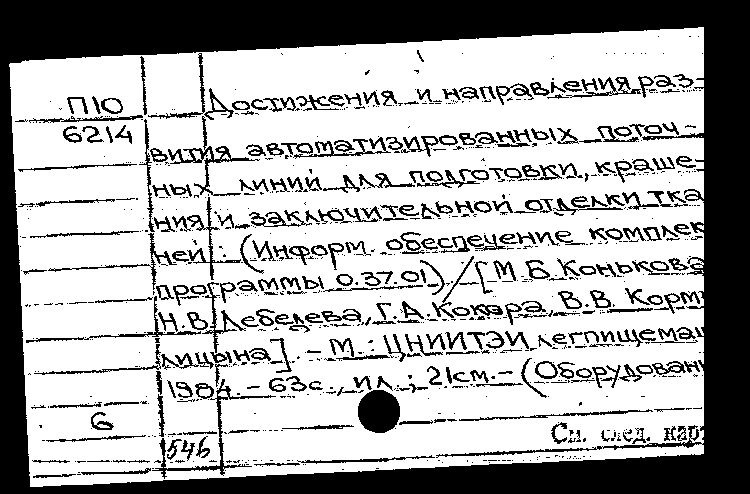 П10 Достижения и направления раз-
6214
вития автоматизированных поточ-
ных линий для подготовки, краше-
ния и заключительной отделки тка
ней : (Информ. обеспечение комплек
программы 0.37.01) / [М.Б. Конькова
Н.В. Лебедева, Г.А. Кокора, В.В. Корм
лицына]. - М. : ЦНИИТЭИлегпищемаш
1984. - 63с., ил. ; 21см. - (Оборудован
6
546
См. след. карт